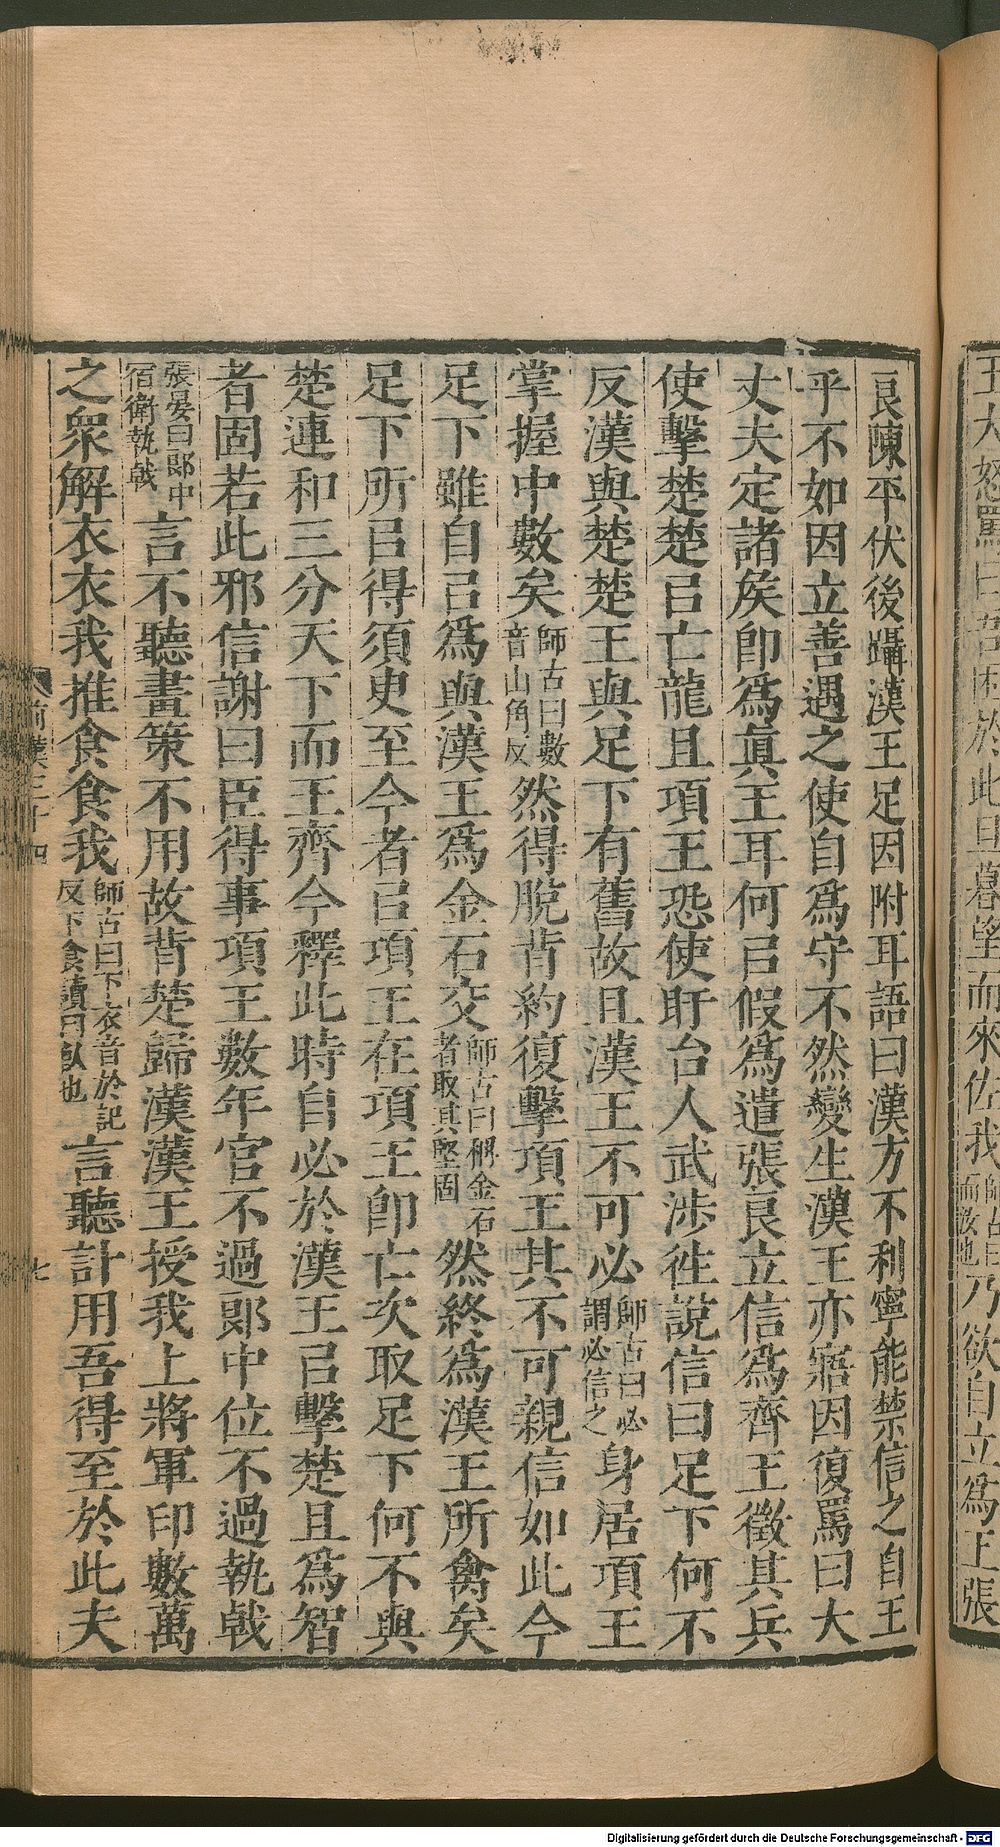 王大怒罵曰吾困於此旦暮望而來佐我師古曰而汝也乃欲自立爲王張
良陳平伏後躡漢王足因附耳語曰漢方不利寧能禁信之自王
乎不如因立善遇之使自爲守不然變生漢王亦寤因復罵曰大
丈夫定諸矦卽爲眞王耳何㠯假爲遣張良立信爲齊王徵其兵
使擊楚楚㠯亡龍且項王恐使盱台人武涉往說信曰足下何不
反漢與楚楚王與足下有舊故且漢王不可必師古曰必謂必信之身居項王
掌握中數矣師古曰數音山角反然得脫背約復擊項王其不可親信如此今
足下雖自㠯爲與漢王爲金石交師古曰稱金石者取其堅固然終爲漢王所禽矣
足下所㠯得須臾至今者㠯項王在項王卽亡次取足下何不與
楚連和三分天下而王齊今釋此時自必於漢王㠯擊楚且爲智
者固若此邪信謝曰臣得事項王數年官不過郎中位不過執戟
張晏曰郎中宿衛執戟言不聽畫策不用故背楚歸漢漢王授我上將軍印數萬
之衆解衣衣我推食食我師古曰下衣音於記反下食讀曰飤也言聽計用吾得至於此夫
前漢三十四
七
Digitalisierung gefördert durch die Deutsche Forschungsgemeinschaft - DFG